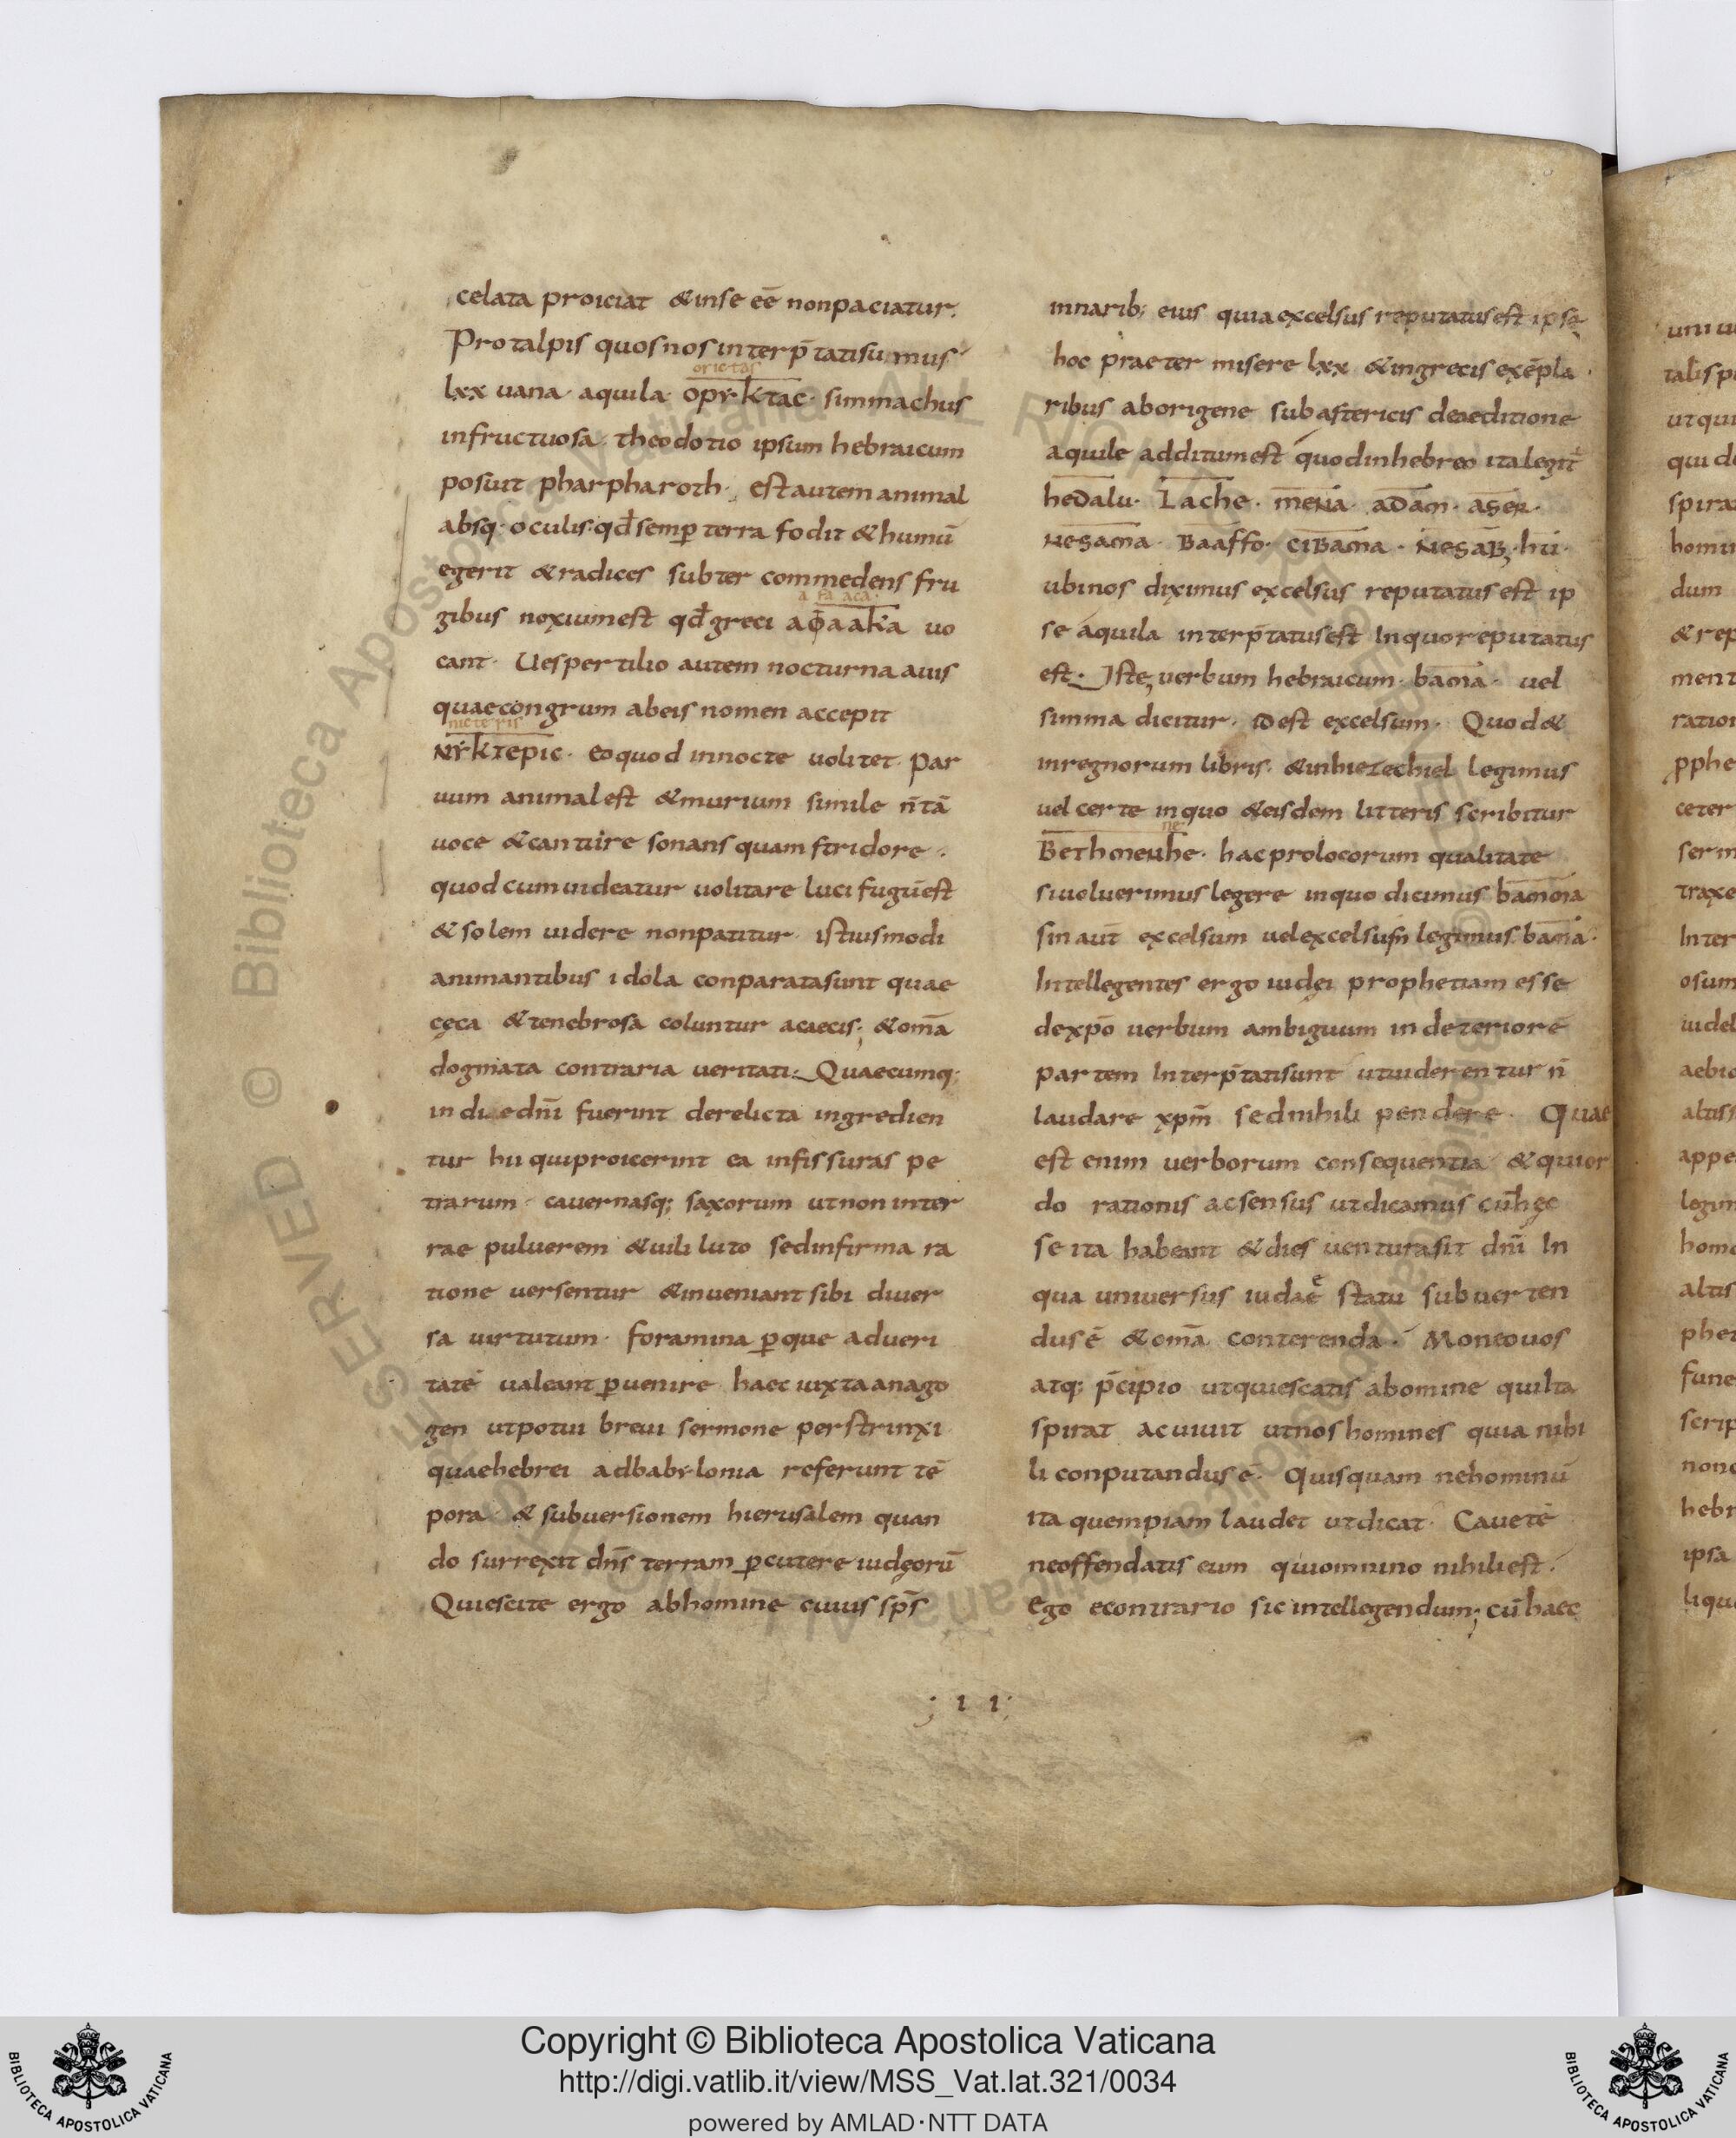 celata proiciat &inse eē nonpaciatur.
Protalpis quosnosinterp̄tatisumus
orictas
lxx uana· aquila· opyktac· simmachus
infructuosa· theodotio ipsum hebraicum
posuit pharpharoth· est autem animal
absq· oculis· qđ semp̱ terra fodit & humū
egerit & radices subter commedens fru
a fa aca·
gibus noxium est qđ greci aɸaaka uo
cant· Uespertilio autem nocturna auis
quae congrum abeis nomen accepit
nicteris
nyktepic· eoquod innocte uolitet· par
uum animal est & murium simile n̄ tā
uoce & cantuire sonans quam stridore·
quod cum uideatur uolitare lucifugū est
& solem uidere nonpatitur· istiusmodi
animantibus idola conparata sunt quae
cęca & tenebrosa coluntur acaecis; & om̄a
dogmata contraria ueritati· Quaecumq;
in die dn̄i fuerint derelicta ingredien
tur hii quiproicerint ea infissuras pe
trarum· cauernasq; saxorum utnon inter
rae puluerem & uili luto sedinfirma ra
tione uersentur & inueniant sibi diuer
sa uirtutum· foramina p̱que adueri
tatē ualeant p̱uenire haec iuxta anago
gen utpotui breui sermone perstrinxi
quae hebrei adbabylonia referunt tē
pora· & subuersionem hierusalem quan
do surrexit dn̄s terram p̱cutere iudęorū
Quiescite ergo abhomine cuius sp̄s
innarib; eius quia excelsus reputatus est ipse
hoc praetermisere lxx & ingrecis exēpla
ribus aborigene sub astericis deaeditione
aquile additum est quodinhebreo italegit᷎
hedalu· Lache· mena· adam· aser·
nesama· Baaffo· ciBama· nesaB;·hu·
ubinos diximus excelsus reputatus est ip
se aquila interp̄tatus est Inquoreputatus
est· Iste, uerbum hebraicum· bama· uel
simma dicitur· idest excelsum· Quod &
inregnorum libris· & inhiezechiel legimus
uel certe inquo & eisdem litteris scribitur
ne
Bethmeuhe· hac prolocorum qualitate
siuoluerimus legere inquo dicimus bamma
sin aut̄ excelsum uel excelsus legimus bama·
Intellegentes ergo iudęi prophetiam esse
dexp̄o uerbum ambiguum indeteriorē
partem Interp̄tatisunt utuiderentur n̄
laudare xp̄m sednihili pendere· Quae
est enim uerborum consequentia & quior
do rationis acsensus utdicamus cū hęc
se ita habeant & dies uenturasit dn̄i In
qua uniuersus iudae statu subuerten
dus ē & om̄a conterenda· Moneouos
atq; p̄cipio utquiescatis abomine quiIta
spirat acuiuit utnos homines quia nihi
li conputandus ē· Quisquam nehominū
ita quempiam laudet utdicat· Cauetē
neoffendatis eum quiomnino nihili est·
Ego econtrario sic intellegendum; cū haec
; I I;
Copyright © Biblioteca Apostolica Vaticana
http://digi.vatlib.it/view/MSS_Vat.lat.321/0034
powered by AMLAD·NTT DATA
BIBLIOTECA APOSTOLICA VATICANA
BIBLIOTECA APOSTOLICA VATICANA